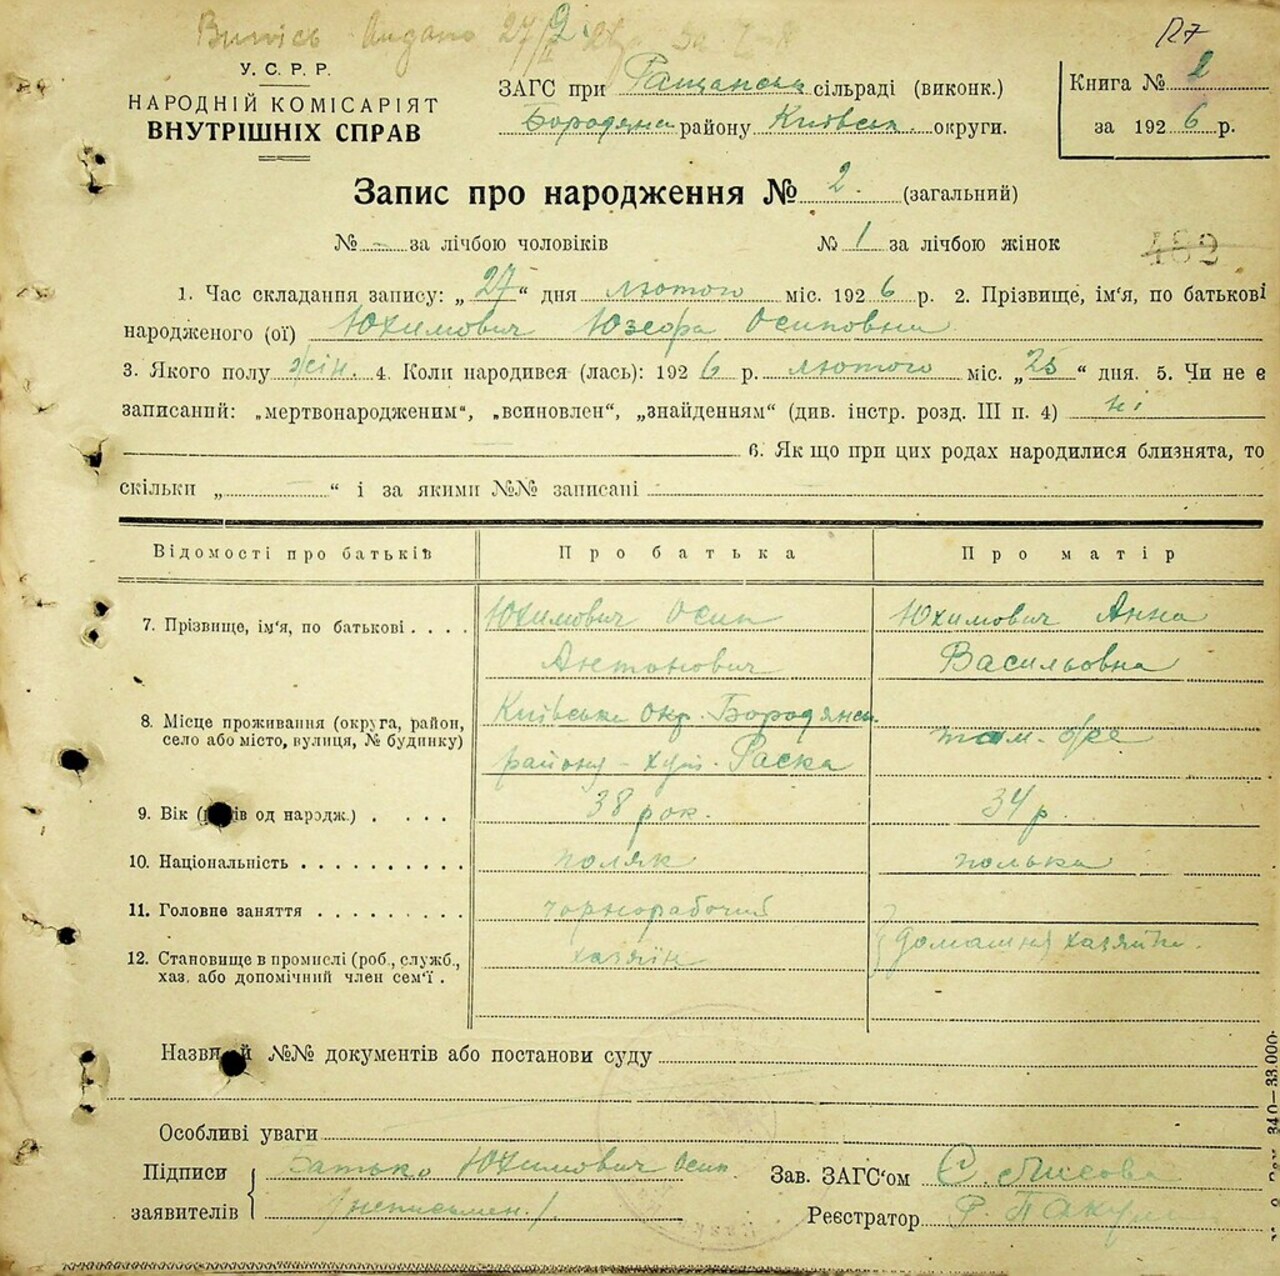 Випись видано 27/II
127
У. С. Р. Р.
НАРОДНІЙ КОМІСАРІЯТ
ВНУТРІШНІХ СПРАВ
ЗАГС при Ращанськ сільраді (виконк.)
Бородянс району Київськ округи.
Книга № 2
за 1926 р.
Запис про народження № 2. (загальний)
№ - за лічбою чоловіків № 1 за лічбою жінок
482
1. Час складання запису: „27“ дня лютого міс. 1926 р. 2. Прізвище, ім'я, по батькові
народженого (ої) Юхимович Юзефа Осиповна
3. Якого полу жін. 4. Коли народився (лась): 1926 р. лютого міс. „25“ дня. 5. Чи не є
записаний: „мертвонародженим“, „всиновлен“, „знайденням“ (див. інстр. розд. III п. 4) ні
6. Як що при цих родах народилися близнята, то
скільки „ “ і за якими №№ записані
Відомості про батьків Про батька Про матір
7. Прізвище, ім'я, по батькові . . . . Юхимович Осип Юхимович Анна
Антонович Васильовна
8. Місце проживання (округа, район, Київська окр. Бородянськ.
село або місто, вулиця, № будинку) району - хут. Раска там-же
9. Вік (років од народж.) . . . . 38 рок. 34 р.
10. Національність . . . . . . . . . . поляк полька
11. Головне заняття . . . . . . . . . чорнорабочий
12. Становище в промислі (роб., служб., хазяїн домашня хазяйк.
хаз. або допомічний член сем'ї .
Назви й №№ документів або постанови суду
Особливі уваги
Підписи батько Юхимович Осип Зав. ЗАГС'ом
заявителів /неписьмен./ Реєстратор Р.